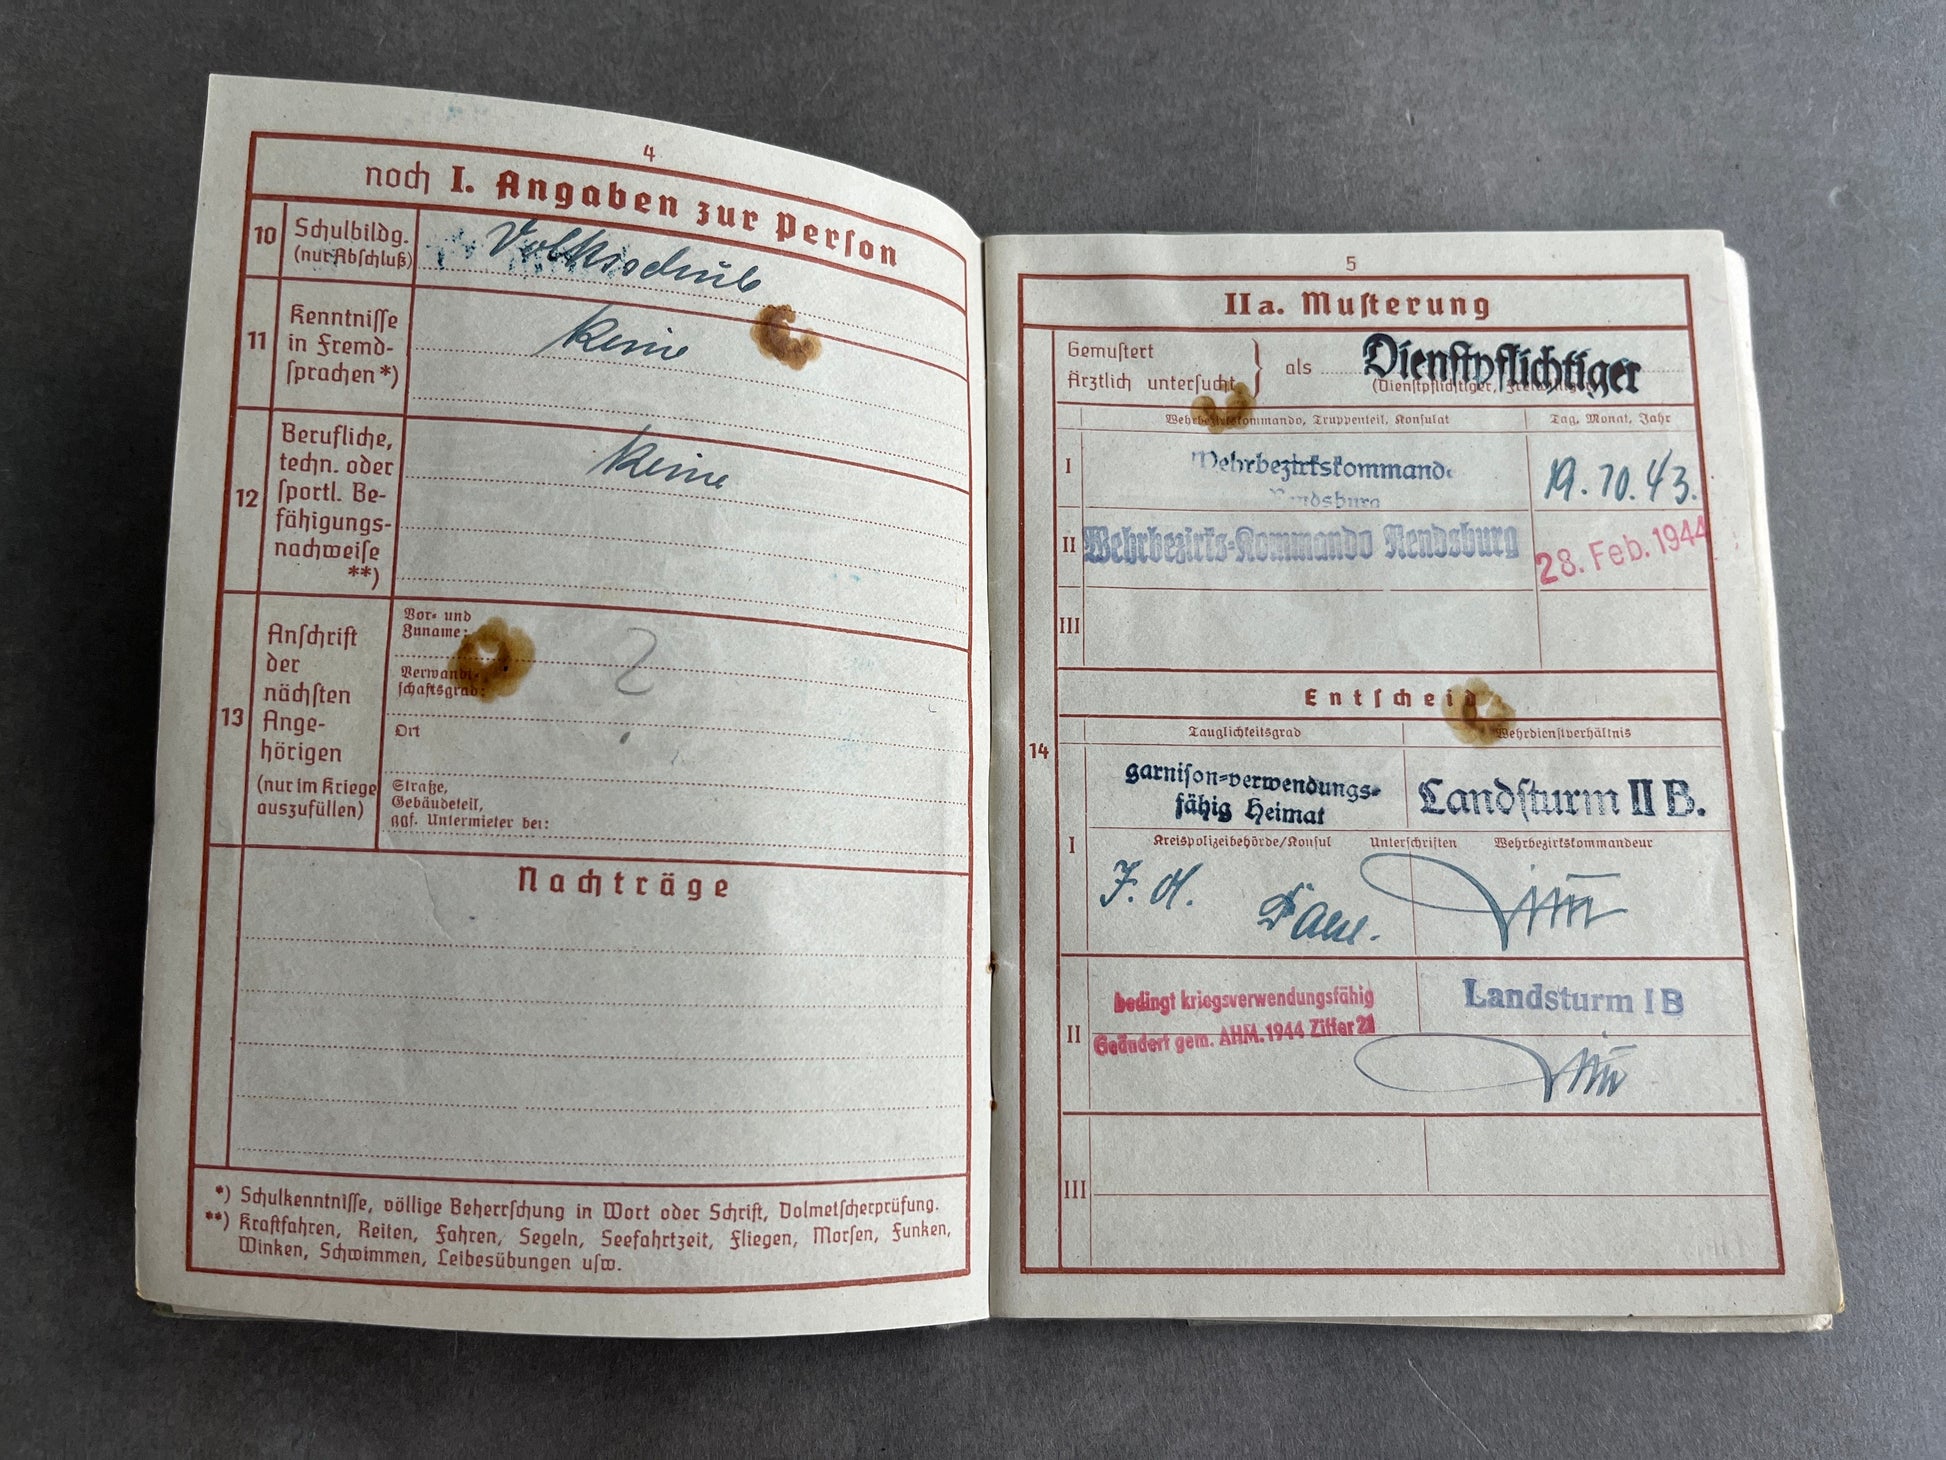 4
noch I. Angaben zur Person
10
Schulbildg.
(nur Abschluß)
Volksschule
11
Kenntnisse
in Fremd-
sprachen *)
keine
12
Berufliche,
techn. oder
sportl. Be-
fähigungs-
nachweise
**)
keine
13
Anschrift
der
nächsten
Ange-
hörigen
(nur im Kriege
auszufüllen)
Vor- und
Zuname:
Verwandt-
schaftsgrad:
Ort
Straße,
Gebäudeteil,
ggf. Untermieter bei:
?
Nachträge
*) Schulkenntnisse, völlige Beherrschung in Wort oder Schrift, Dolmetscherprüfung.
**) Kraftfahren, Reiten, Fahren, Segeln, Seefahrtzeit, Fliegen, Morsen, Funken,
Winken, Schwimmen, Leibesübungen usw.
5
IIa. Musterung
Gemustert
Ärztlich untersucht
als
Dienstpflichtiger
(Dienstpflichtiger, Freiwilliger)
Wehrbezirkskommando, Truppenteil, Konsulat
Tag, Monat, Jahr
I
Wehrbezirkskommando
Rendsburg
19. 10. 43.
II
Wehrbezirks-Kommando Rendsburg
28. Feb. 1944
III
Entscheid
14
Tauglichkeitsgrad
Wehrdienstverhältnis
I
garnison-verwendungs-
fähig Heimat
Landsturm II B.
Kreispolizeibehörde/Konsul
Unterschriften
Wehrbezirkskommandeur
II
bedingt kriegsverwendungsfähig
Geändert gem. AHM. 1944 Ziffer 21
Landsturm I B
III